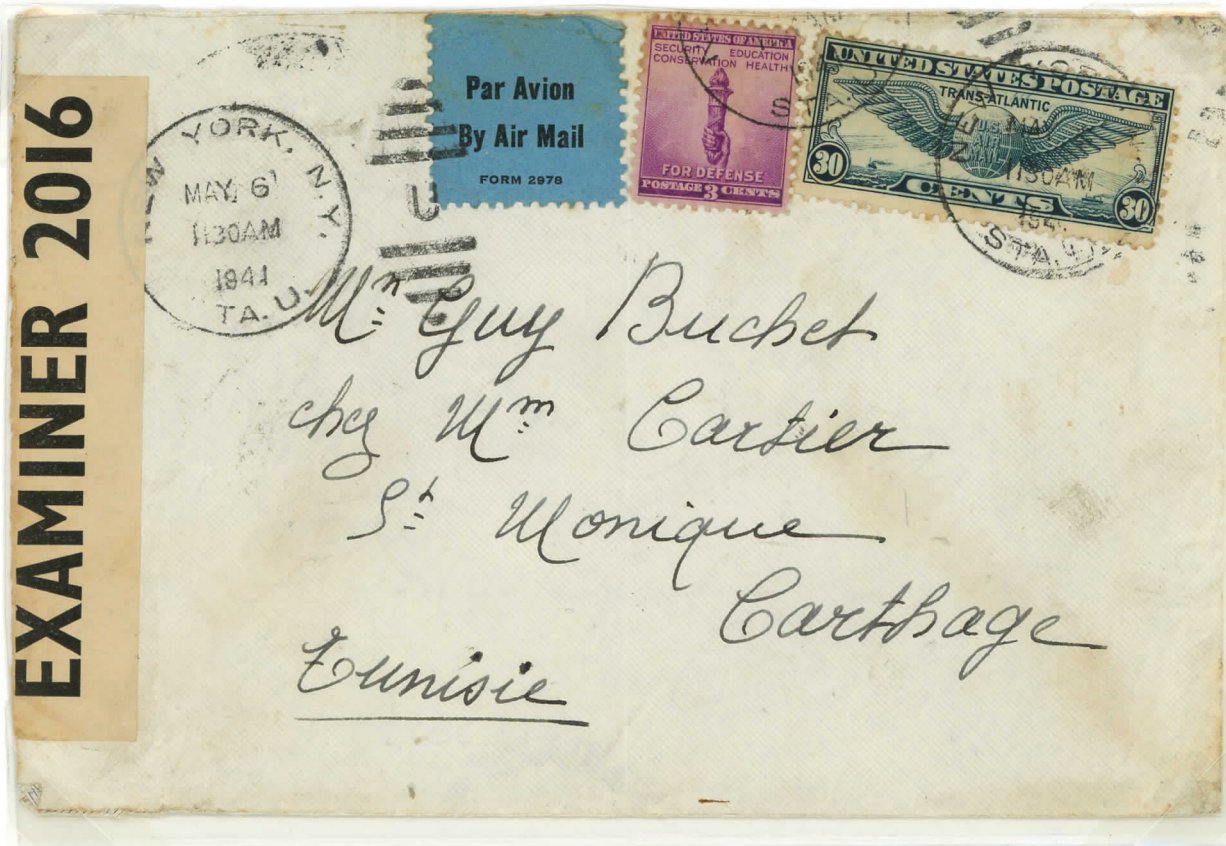 EXAMINER 2016
NEW YORK, N.Y.
MAY 6
1130AM
1941
TA. U.
U
Par Avion
By Air Mail
FORM 2978
UNITED STATES OF AMERICA
SECURITY EDUCATION
CONSERVATION HEALTH
FOR DEFENSE
POSTAGE 3 CENTS
STA.
UNITED STATES POSTAGE
TRANS-ATLANTIC
30 CENTS 30
1130AM
STA. U.
Mr Guy Buchet
chez Mm Cartier
St Monique
Carthage
Tunisie